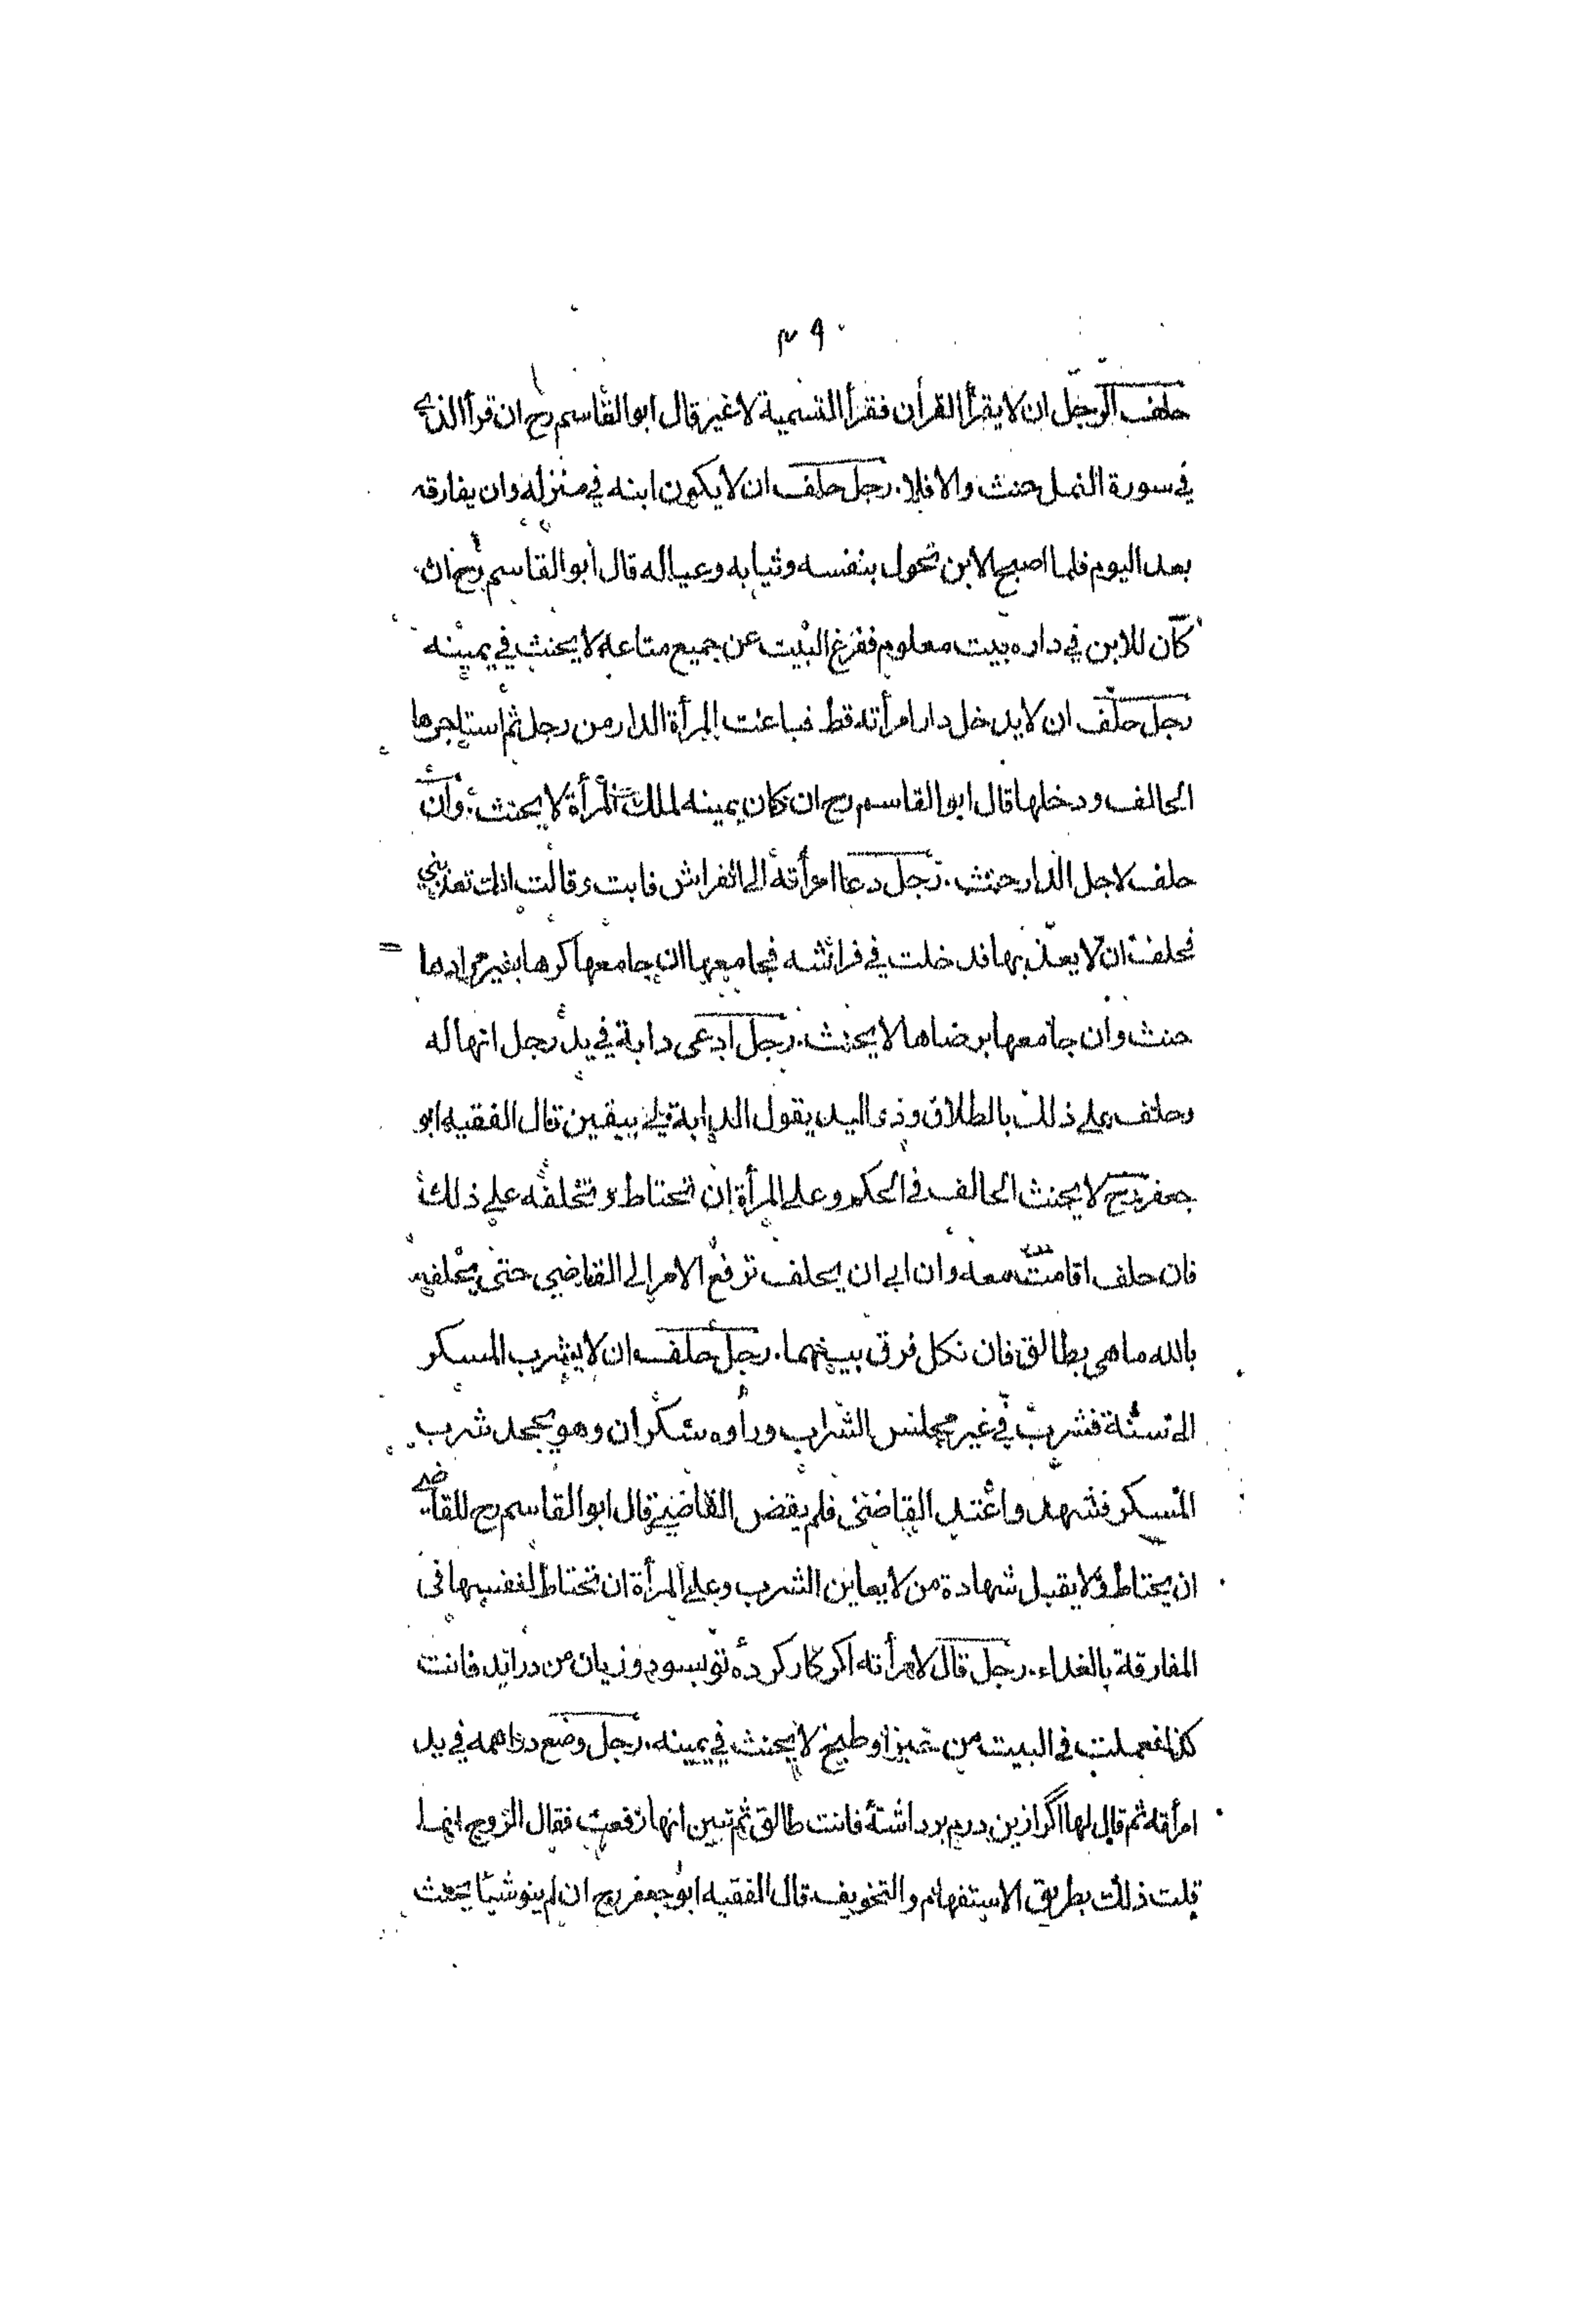 ٩٣
حلف الرجل ان لا يقرأ القرأن فقرأ التسمية لا غير قال ابو القاسم رح ان قرأ الذى
فى سورة النمل حنث والا فلا. رجل حلف ان لا يكون ابنه في منزله وان يفارقه
بعد اليوم فلما اصبح الابن تحول بنفسه وثيابه وعياله قال ابو القاسم رح ان
كان للابن في داره بيت معلوم ففرغ البيت عن جميع متاعه لا يحنث في يمينه
رجل حلف ان لا يدخل دار امرأته قط فباعت المرأة الدار من رجل ثم استاجرها
الحالف ودخلها قال ابو القاسم رح ان كان يمينه لملك المرأة لا يحنث. وان
حلف لاجل الدار حنث. رجل دعا امرأته الى الفراش فابت وقالت انك تعذبني
فحلف ان لا يعذبها فدخلت في فراشه فجامعها ان جامعها كرها بغير مرادها
حنث وان جامعها برضاها لا يحنث. رجل ادعى دابة في يد رجل انها له
وحلف على ذلك بالطلاق وذى اليد يقول الدابة لى بيقين قال الفقيه ابو
جعفر رح لا يحنث الحالف فى الحكم وعلى المرأة ان تحتاط وتحلفه على ذلك
فان حلف اقامت معه وان ابى ان يحلف ترفع الامر الى القاضي حتى يحلفه
بالله ما هى بطالق فان نكل فرق بينهما. رجل حلف ان لا يشرب المسكر
الى سنة فشرب في غير مجلس الشراب ورأوه سكران وهو يجحد شرب
المسكر فشهدوا عند القاضى فلم يقض القاضى قال ابو القاسم رح للقاضى
ان يحتاط ولا يقبل شهادة من لا يعاين الشرب وعلى المرأة ان تحتاط لنفسها فى
المفارقة بالفداء. رجل قال لامرأته اكر كار كرده تو بسود وزيان من درايد فانت
كذا فعملت فى البيت من خبز او طبيخ لا يحنث في يمينه. رجل وضع دراهمه في يد
امرأته ثم قال لها اگر ازين درم برداشتۀ فانت طالق ثم تبين انها رفعت فقال الزوج انما
قلت ذلك بطريق الاستفهام والتخويف قال الفقيه ابو جعفر رح ان لم ينو شيئا يحنث